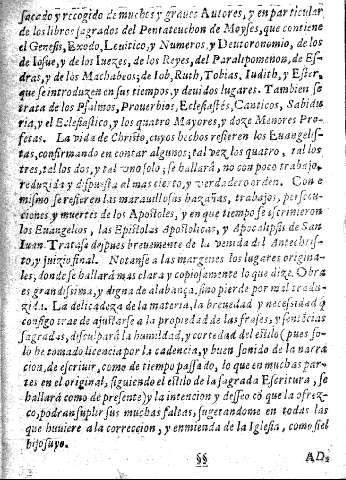 sacado y recogido de muchos y graves Autores, y en particular
de los libros sagrados del Pentateuchon de Moyses, que contiene
el Genesis, Exodo, Leuitico, y Numeros, y Deutoronomio, de los
de Iosue, y de los Iuezes, de los Reyes, del Paralipomenon, de Es-
dras, y de los Machabeos; de Iob, Ruth, Tobias, Iudith, y Ester,
que se introduzen en sus tiempos, y deuidos lugares. Tambien se
trata de los Psalmos, Prouerbios, Eclesiastés, Canticos, Sabidu
ria, y el Eclesiastico, y los quatro Mayores, y doze Menores Pro-
fetas. La vida de Christo, cuyos hechos refieren los Euangelis-
tas, confirmando en contar algunos; tal vez los quatro, tal los
tres, tal los dos, y tal vno solo; se hallará, no con poco trabajo,
reduzida y dispuesta al mas cierto, y verdadero orden. Con e
mismo se refieren las marauillosas hazañas, trabajos, persecu-
ciones y muertes de los Apostoles, y en que tiempo se escriuieron
los Euangelios, las Epistolas Apostolicas, y Apocalipsis de San
Iuan. Tratase despues breuemente de la venida del Antechris-
to, y juizio final. Notanse a las margenes los lugares origina-
les, donde se hallará mas clara y copiosamente lo que dize. Obra
es grandissima, y digna de alabança, sino pierde por mal tradu-
zida. La delicadeza de la materia, la breuedad y necessidad q̃
consigo trae de ajustarse a la propiedad de las frases, y sentẽcias
sagradas, disculpará la humildad, y cortedad del estilo (pues so-
lo he tomado licencia por la cadencia, y buen sonido de la narra
cion, de escriuir, como de tiempo passado, lo que en muchas par-
tes en el original, siguiendo el estilo de la sagrada Escritura, se
hallará como de presente) y la intencion y desseo cõ que la ofrez-
co, podran suplir sus muchas faltas, sugetandome en todas las
que huuiere a la correccion, y enmienda de la Iglesia, como fiel
hijo suyo.
§§ AD